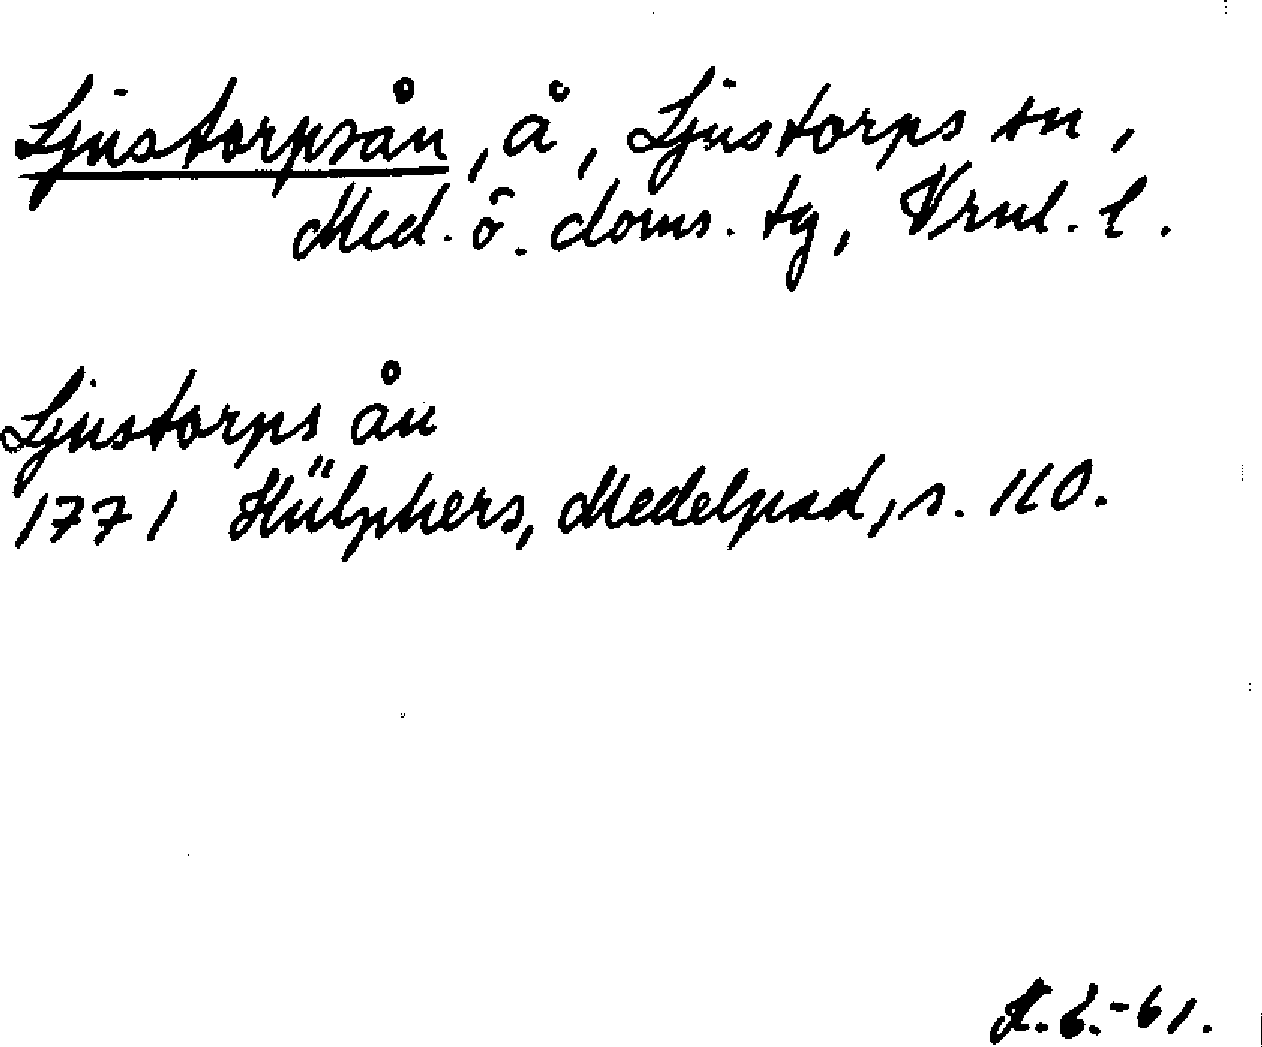 Ljustorpsån, å, Ljustorps sn,
Med. ö. doms. tg, Vrnl. l.
Ljustorps ån
1771 Hülphers, Medelpad, s. 110.
-61.